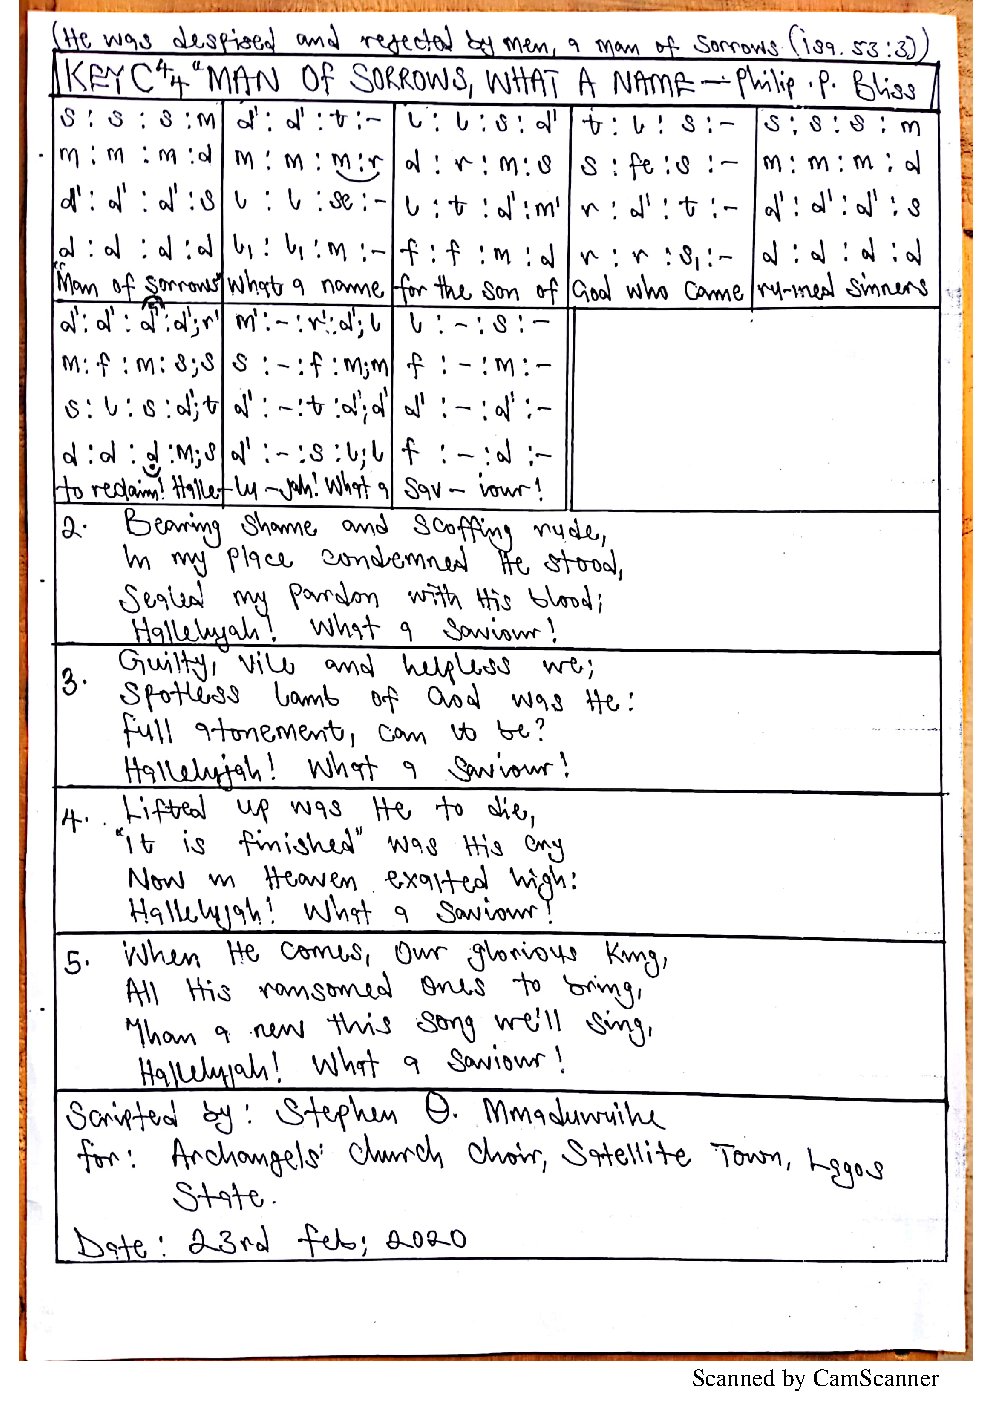 (He was despised and rejected by men, a man of sorrows (isa. 53:3))
KEY C 4/4 "MAN OF SORROWS, WHAT A NAME — Philip .P. Bliss
s : s : s : m | d' : d' : t : – | l : l : s : d' | t : l : s : – | s : s : s : m
m : m : m : d | m : m : m : r | d : r : m : s | s : fe : s : – | m : m : m : d
d' : d' : d' : s | l : l : se : – | l : t : d' : m' | r : d' : t : – | d' : d' : d' : s
d : d : d : d | l₁ : l₁ : m : – | f : f : m : d | r : r : s₁ : – | d : d : d : d
"Man of Sorrows" | What a name | for the son of | God who came | ru-ined sinners
d' : d' : d' : d' ; r' | m' : – : r' : d' ; l | l : – : s : –
m : f : m : s ; s | s : – : f : m ; m | f : – : m : –
s : l : s : d' ; t | d' : – : t : d' ; d' | d' : – : d' : –
d : d : d : m ; s | d' : – : s : l ; l | f : – : d : –
to reclaim! Halle- | lu – jah! What a | Sav – iour!
2. Bearing shame and scoffing rude,
In my place condemned He stood,
Sealed my pardon with His blood;
Hallelujah! What a Saviour!
3. Guilty, vile and helpless we;
Spotless Lamb of God was He:
full atonement, can it be?
Hallelujah! What a Saviour!
4. Lifted up was He to die,
"It is finished" was His cry
Now in Heaven exalted high:
Hallelujah! What a Saviour!
5. When He comes, Our glorious King,
All His ransomed Ones to bring,
Than a new this song we'll sing,
Hallelujah! What a Saviour!
Scripted by: Stephen O. Mmaduwuihe
for: Archangels' Church Choir, Satellite Town, Lagos
State.
Date: 23rd feb; 2020
Scanned by CamScanner